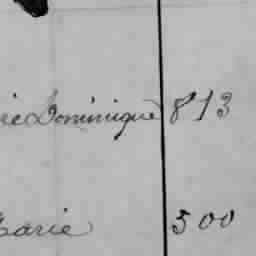 Dominique 813
Marie 500